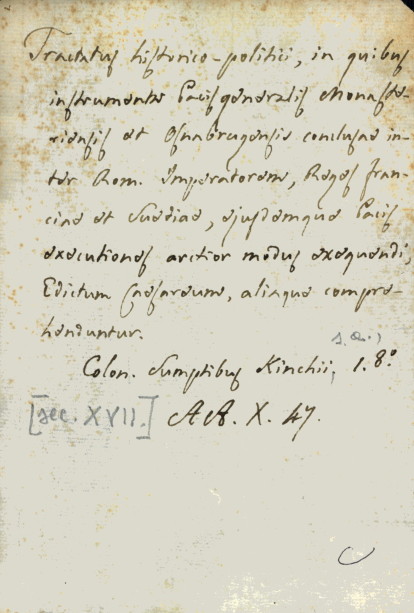 Tractatus historico-politici, in quibus
instrumenta Pacis generalis Monaste-
riensis et Osnabrugensis conclusae in-
ter Rom. Imperatorem, Reges Fran-
ciae et Sueciae, ejusdemque Pacis
executiones arctior modus exequendi,
Edictum Caesareum, aliaque compre-
henduntur.
s. a.,
Colon. Sumptibus Kinchii, 1. 8º.
[sec. XVII.] AA. X. 47.